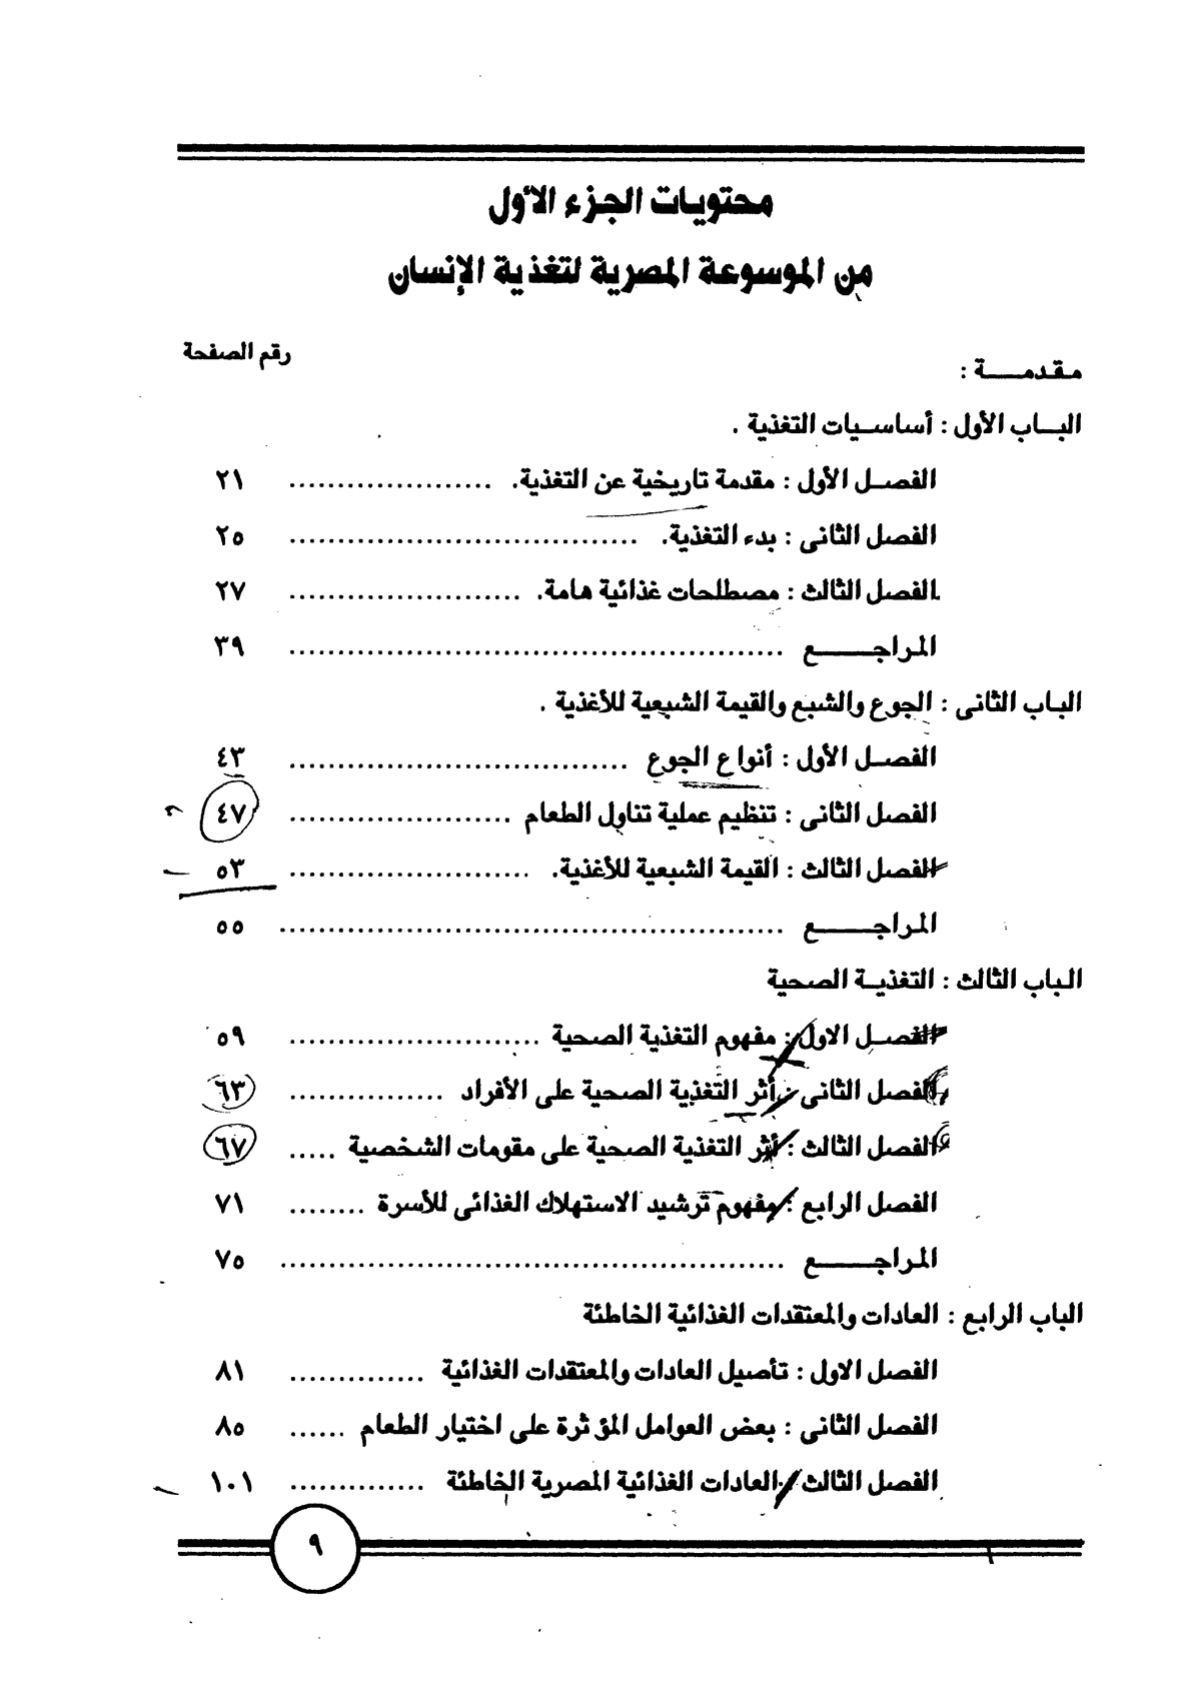 محتويات الجزء الأول
من الموسوعة المصرية لتغذية الإنسان
رقم الصفحة
مقدمـــة :
البـاب الأول : أساسـيات التغذية .
الفصـل الأول : مقدمة تاريخية عن التغذية. ..................... ٢١
الفصل الثانى : بدء التغذية. .................................... ٢٥
الفصل الثالث : مصطلحات غذائية هامة. ........................ ٢٧
المراجـــــع ................................................... ٣٩
الباب الثانى : الجوع والشبع والقيمة الشبعية للأغذية .
الفصـل الأول : أنواع الجوع ................................... ٤٣
الفصل الثانى : تنظيم عملية تناول الطعام ....................... ٤٧
الفصل الثالث : القيمة الشبعية للأغذية. ......................... ٥٣
المراجـــــع .................................................... ٥٥
الباب الثالث : التغذيـة الصحية
الفصـل الاول : مفهوم التغذية الصحية .......................... ٥٩
الفصل الثانى : أثر التغذية الصحية على الأفراد ................ ٦٣
الفصل الثالث : أثر التغذية الصحية على مقومات الشخصية ..... ٦٧
الفصل الرابع : مفهوم ترشيد الاستهلاك الغذائى للأسرة ........ ٧١
المراجـــــع .................................................... ٧٥
الباب الرابع : العادات والمعتقدات الغذائية الخاطئة
الفصل الاول : تأصيل العادات والمعتقدات الغذائية .............. ٨١
الفصل الثانى : بعض العوامل المؤثرة على اختيار الطعام ...... ٨٥
الفصل الثالث : العادات الغذائية المصرية الخاطئة .............. ١٠١
٩